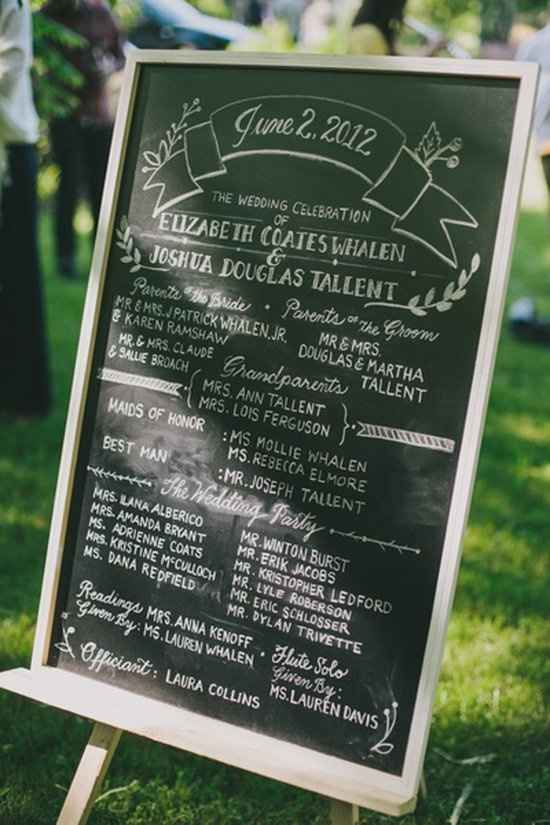 June 2, 2012
THE WEDDING CELEBRATION
OF
ELIZABETH COATES WHALEN
&
JOSHUA DOUGLAS TALLENT
Parents of the Bride • Parents of the Groom
MR & MRS. J PATRICK WHALEN, JR.
& KAREN RAMSHAW
MR. & MRS. CLAUDE
& SALLIE BROACH
MR & MRS.
DOUGLAS & MARTHA
TALLENT
Grandparents
MRS. ANN TALLENT
MRS. LOIS FERGUSON
MAIDS OF HONOR : MS. MOLLIE WHALEN
MS. REBECCA ELMORE
BEST MAN : MR. JOSEPH TALLENT
The Wedding Party
MRS. ILANA ALBERICO
MRS. AMANDA BRYANT
MS. ADRIENNE COATS
MRS. KRISTINE McCULLOCH
MS. DANA REDFIELD
MR. WINTON BURST
MR. ERIK JACOBS
MR. KRISTOPHER LEDFORD
MR. LYLE ROBERSON
MR. ERIC SCHLOSSER
MR. DYLAN TRIVETTE
Readings
Given By: MRS. ANNA KENOFF
MS. LAUREN WHALEN
• Flute Solo
Given By:
MS. LAUREN DAVIS
Officiant: LAURA COLLINS